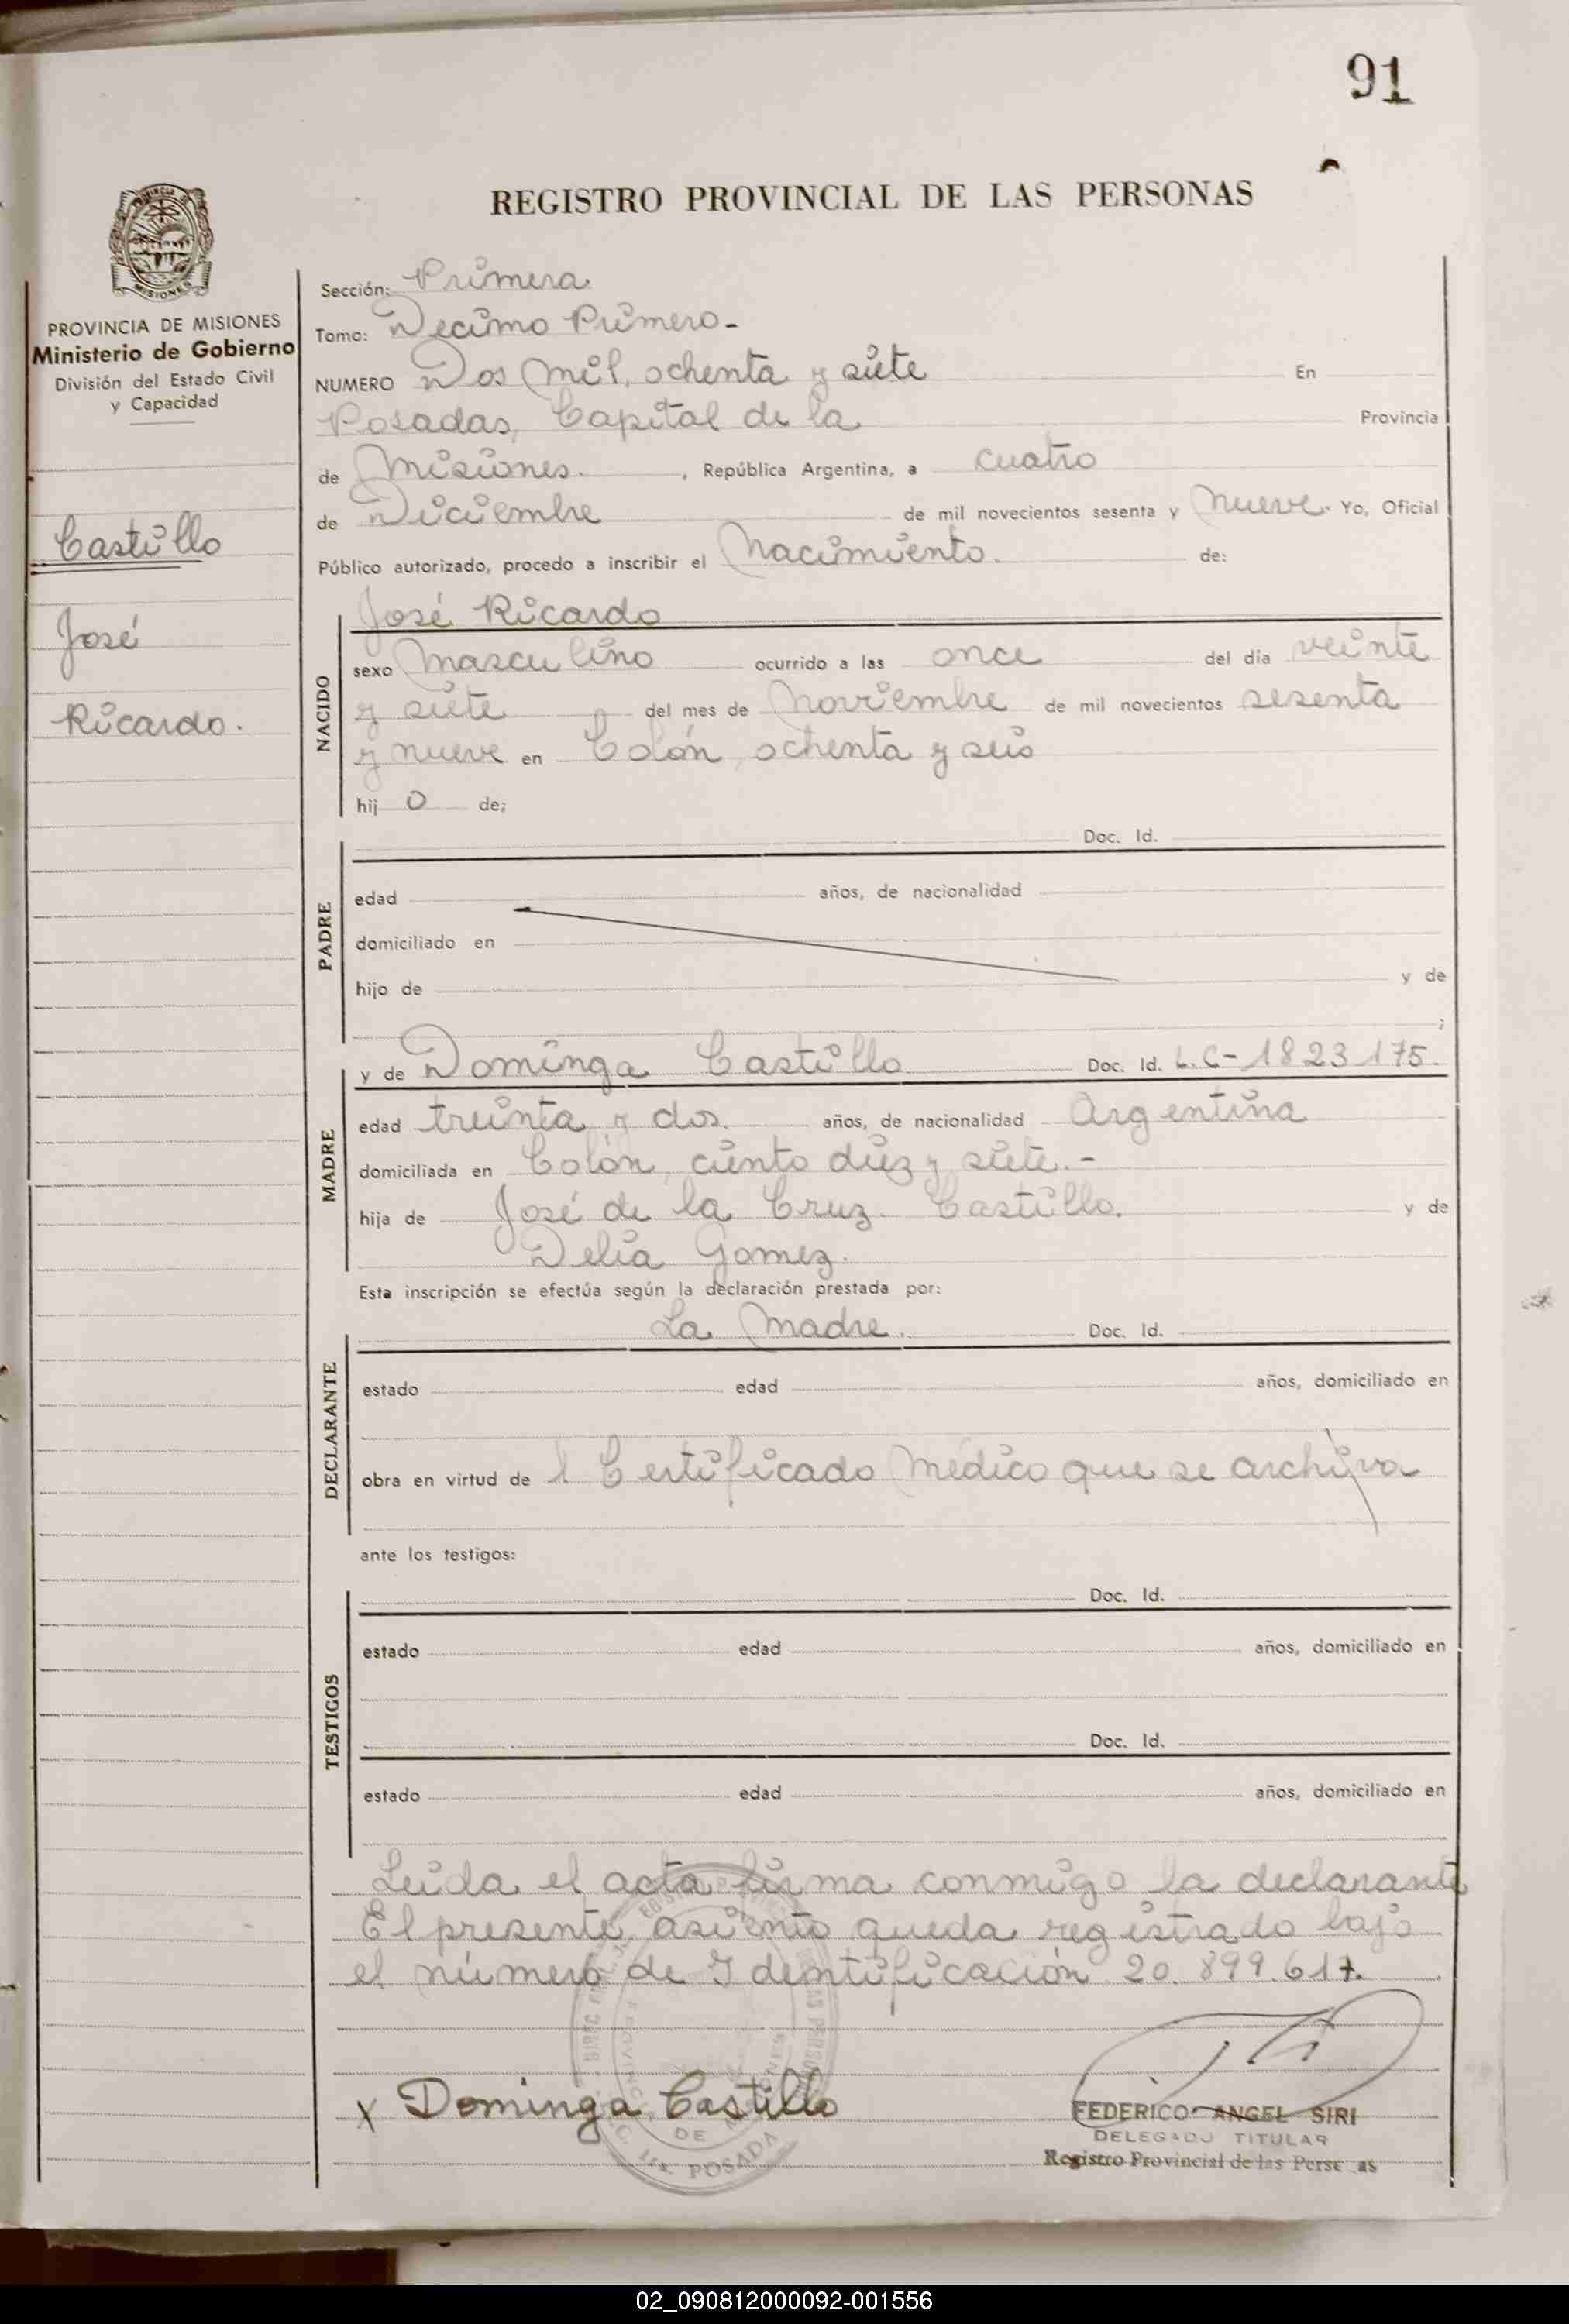 91
REGISTRO PROVINCIAL DE LAS PERSONAS
PROVINCIA
MISIONES
PROVINCIA DE MISIONES
Ministerio de Gobierno
División del Estado Civil
y Capacidad
Castillo
José
Ricardo.
Sección: Primera
Tomo: Decimo Primero.-
NUMERO Dos mil, ochenta y siete En
Posadas, Capital de la Provincia
de Misiones. , República Argentina, a cuatro
de Diciembre de mil novecientos sesenta y nueve. Yo, Oficial
Público autorizado, procedo a inscribir el Nacimiento. de:
NACIDO
José Ricardo
sexo Masculino ocurrido a las once del día veinte
y siete del mes de Noviembre de mil novecientos sesenta
y nueve en Colón, ochenta y seis
hij o de;
PADRE
Doc. Id.
edad años, de nacionalidad
domiciliado en
hijo de y de
;
MADRE
y de Dominga Castillo Doc. Id. L.C-1823175.
edad treinta y dos. años, de nacionalidad Argentina
domiciliada en Colón, ciento diez y siete.-
hija de José de la Cruz. Castillo. y de
Delia Gomez.
Esta inscripción se efectúa según la declaración prestada por:
DECLARANTE
La Madre. Doc. Id.
estado edad años, domiciliado en
obra en virtud de l Certificado Médico que se archiva
ante los testigos:
TESTIGOS
Doc. Id.
estado edad años, domiciliado en
Doc. Id.
estado edad años, domiciliado en
Leida el acta firma conmigo la declarante
El presente asiento queda registrado bajo
el número de Identificación 20.899.617.
x Dominga Castillo
DE
POSADA
FEDERICO ANGEL SIRI
DELEGADO TITULAR
Registro Provincial de las Perse as
02_090812000092-001556